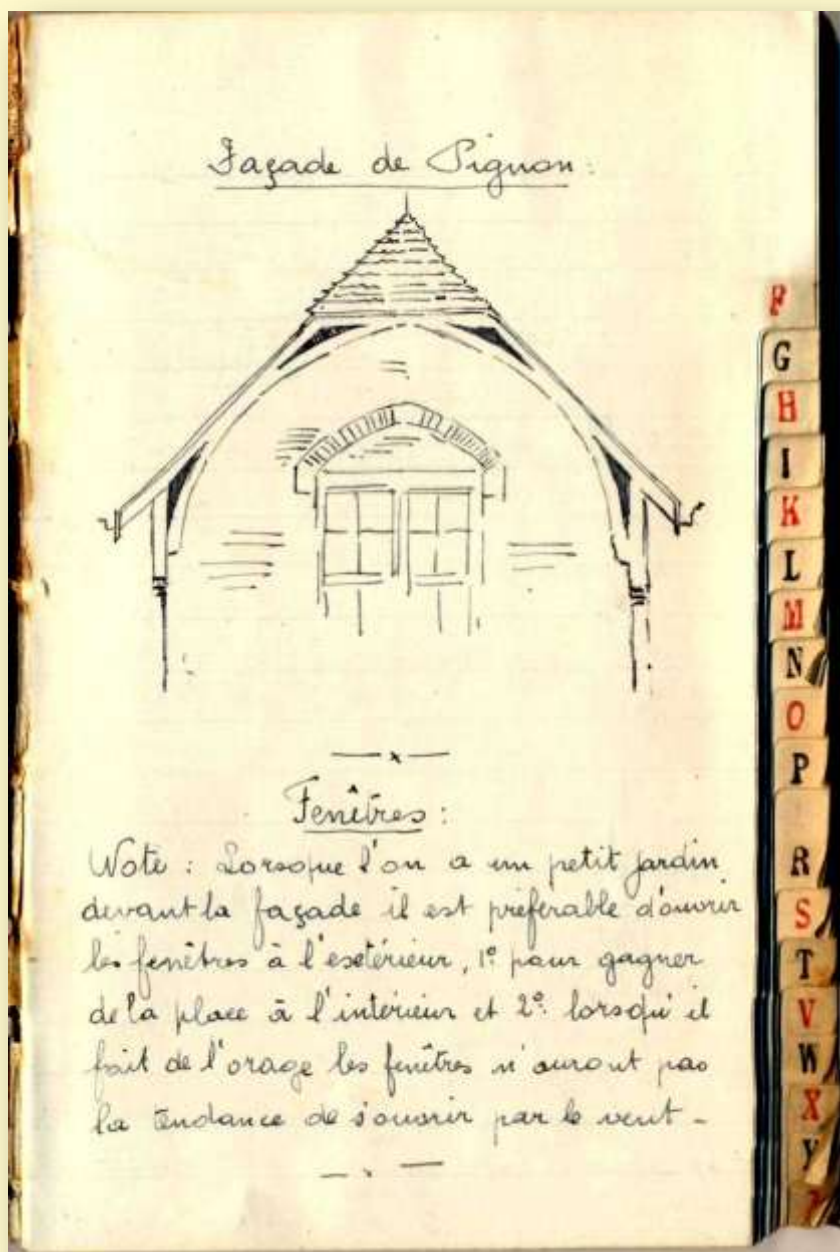 Façade de Pignon :
Fenêtres :
Note : Lorsque l'on a un petit jardin
devant la façade il est préférable d'ouvrir
les fenêtres à l'extérieur, 1º pour gagner
de la place à l'intérieur et 2º lorsqu'il
fait de l'orage les fenêtres n'auront pas
la tendance de s'ouvrir par le vent -
F
G
H
I
K
L
M
N
O
P
R
S
T
V
W
X
Y